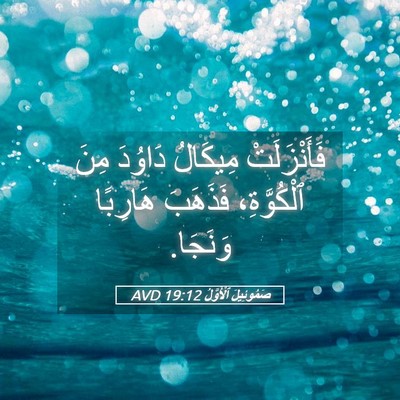 فَأَنْزَلَتْ مِيكَالُ دَاوُدَ مِنَ
ٱلْكُوَّةِ، فَذَهَبَ هَارِبًا
وَنَجَا.
صَمُوئِيلَ ٱلْأَوَّلُ 19:12 AVD